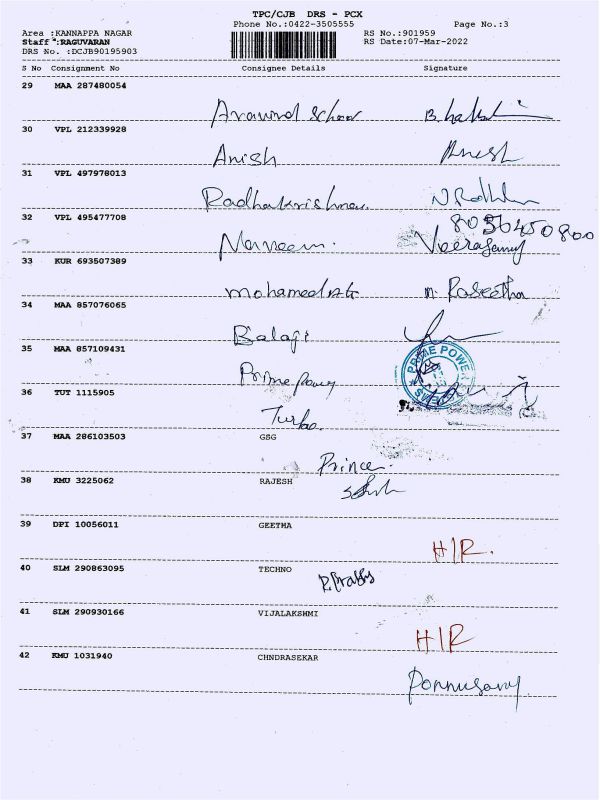 TPC/CJB DRS - PCX
Phone No.:0422-3505555 Page No.:3
Area :KANNAPPA NAGAR RS No.:901959
Staff :RAGUVARAN RS Date:07-Mar-2022
DRS No. :DCJB90195903
S No Consignment No Consignee Details Signature
29 MAA 287480054
Aravind School
30 VPL 212339928
Anish Anish
31 VPL 497978013
Radhakrishnan.
32 VPL 495477708
8056450800
Veerasamy
33 KUR 693507389
Mohamed M. Raseetha
34 MAA 857076065
Balaji
35 MAA 857109431
Prime PRIME POWER
36 TUT 1115905
Turbo.
37 MAA 286103503 GSG
Prince.
38 KMU 3225062 RAJESH
39 DPI 10056011 GEETHA
H/R.
40 SLM 290863095 TECHNO
41 SLM 290930166 VIJALAKSHMI
H/R
42 KMU 1031940 CHNDRASEKAR
Ponnusamy